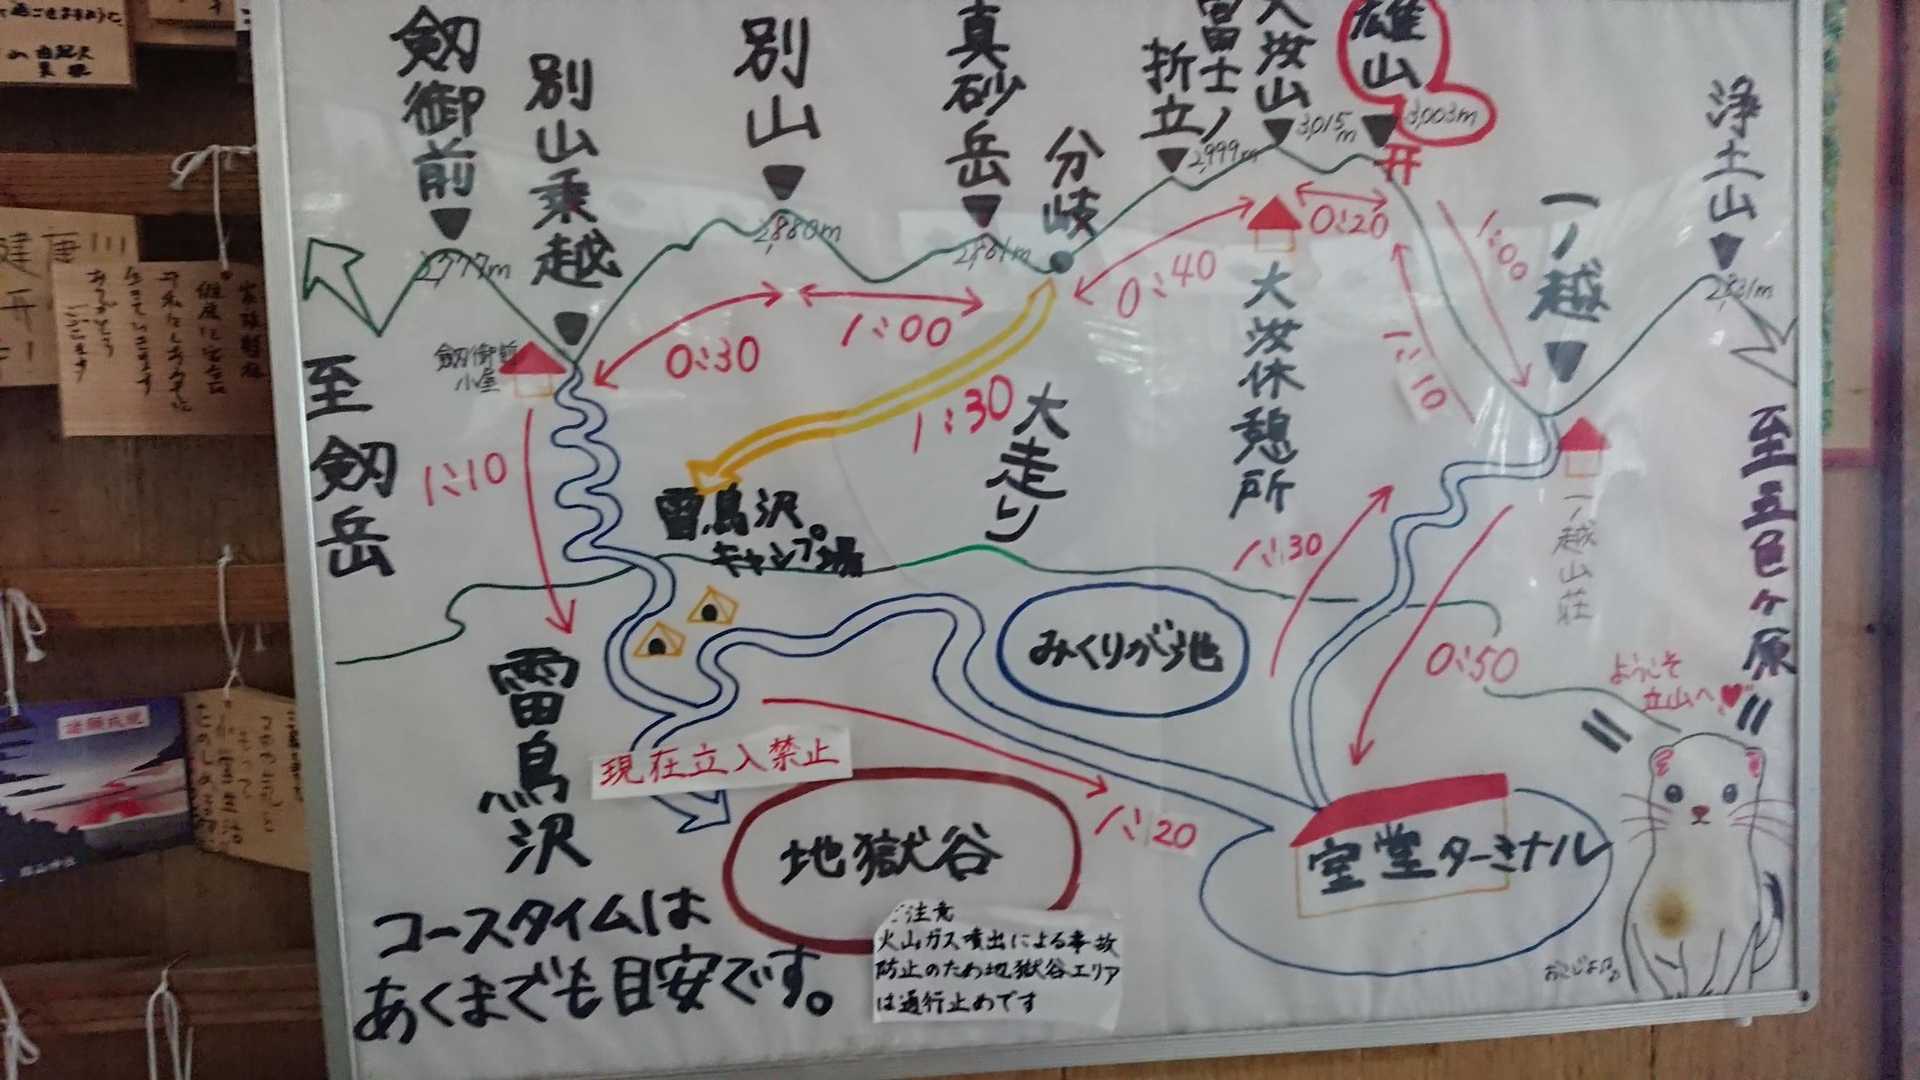 剱御前
2,777m
別山乗越
別山
2,880m
真砂岳
2,861m
分岐
富士ノ
折立
2,999m
大汝山
3,015m
雄山
3,003m
浄土山
2,831m
一ノ越
0:20
1:00
0:40
1:10
0:30
1:00
1:30
大走り
大汝休憩所
剱御前
小屋
至剱岳
1:10
雷鳥沢
キャンプ場
1:30
一ノ越山荘
至五色ヶ原
0:50
みくりが池
ようこそ
立山へ♥
雷鳥沢
現在立入禁止
1:20
地獄谷
室堂ターミナル
おこじょ
ご注意
火山ガス噴出による事故
防止のため地獄谷エリア
は通行止めです
コースタイムは
あくまでも目安です。